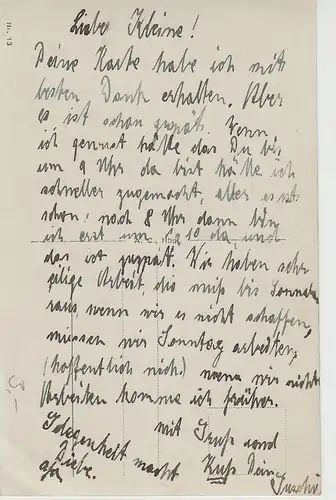 Nr. 13
Liebe Kleine!
Deine Karte habe ich mit
besten Dank erhalten. Aber
es ist schon zuspät. Wenn
ich gewust hätte das Du bis
um 9 Uhr da bist hätte ich
schneller zugemacht, aber es ist
schon nach 8 Uhr dann bin
ich erst um 10 da, und
das ist zuspät. Wir haben sehr
eilige Arbeit, die muß bis Sonnab.
raus, wenn wir es nicht schaffen,
müssen wir Sonntag arbeiten,
(hoffentlich nich.) wenn wir nicht
Arbeiten komme ich früher.
mit Gruß und
Kuß Deine
Gelegenheit macht
Liebe.
5,-